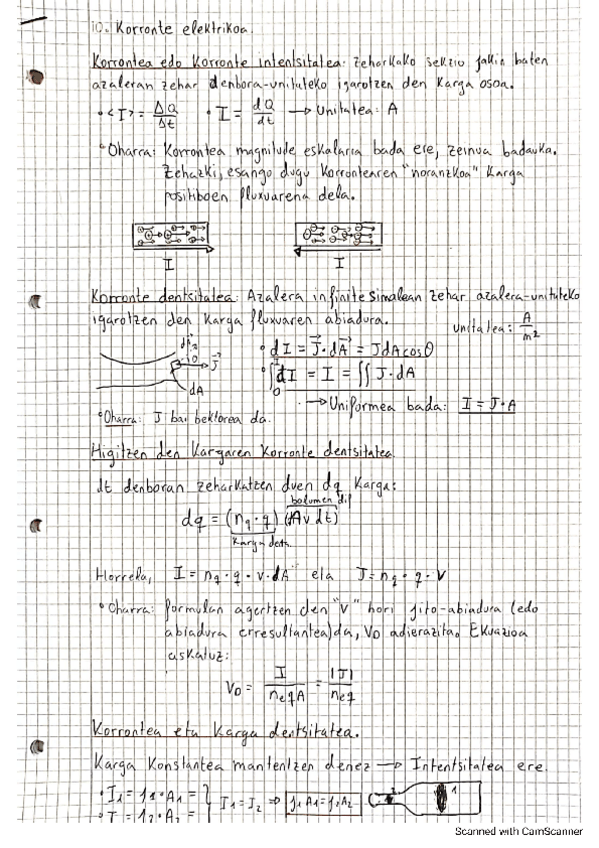 10. Korronte elektrikoa.
Korrontea edo korronte intentsitatea: zeharkako sekzio jakin baten
azaleran zehar denbora-unitateko igarotzen den karga osoa.
• <I> = ΔQ/Δt • I = dQ/dt → Unitatea: A
• Oharra: Korrontea magnitude eskalarra bada ere, zeinua badauka.
Zehazki, esango dugu korrontearen "noranzkoa" karga
positiboen fluxuarena dela.
I I
Korronte dentsitatea: Azalera infinitesimalean zehar azalera-unitateko
igarotzen den karga fluxuaren abiadura. unitatea: A/m²
• dI = J⃗·dA⃗ = JdAcosθ
θ J⃗
• ∫₀ᴵ dI = I = ∬ J·dA
dA
→ Uniformea bada: I = J·A
• Oharra: J bai bektorea da.
Higitzen den kargaren korronte dentsitatea
dt denboran zeharkatzen duen dq karga:
bolumen dif
dq = (nq·q)(Av dt)
karga dents.
Horrela, I = nq·q·v·dA eta J = nq·q·v
• Oharra: formulan agertzen den "v" hori jito-abiadura (edo
abiadura erresultantea) da, VD adierazita. Ekuazioa
askatuz:
VD = I/neqA = |J|/neq
Korrontea eta karga dentsitatea.
Karga konstantea mantentzen denez → Intentsitatea ere.
• I1 = j1·A1 = } I1 = I2 ⇒ j1A1 = j2A2 1
j2·A2 =
Scanned with CamScanner